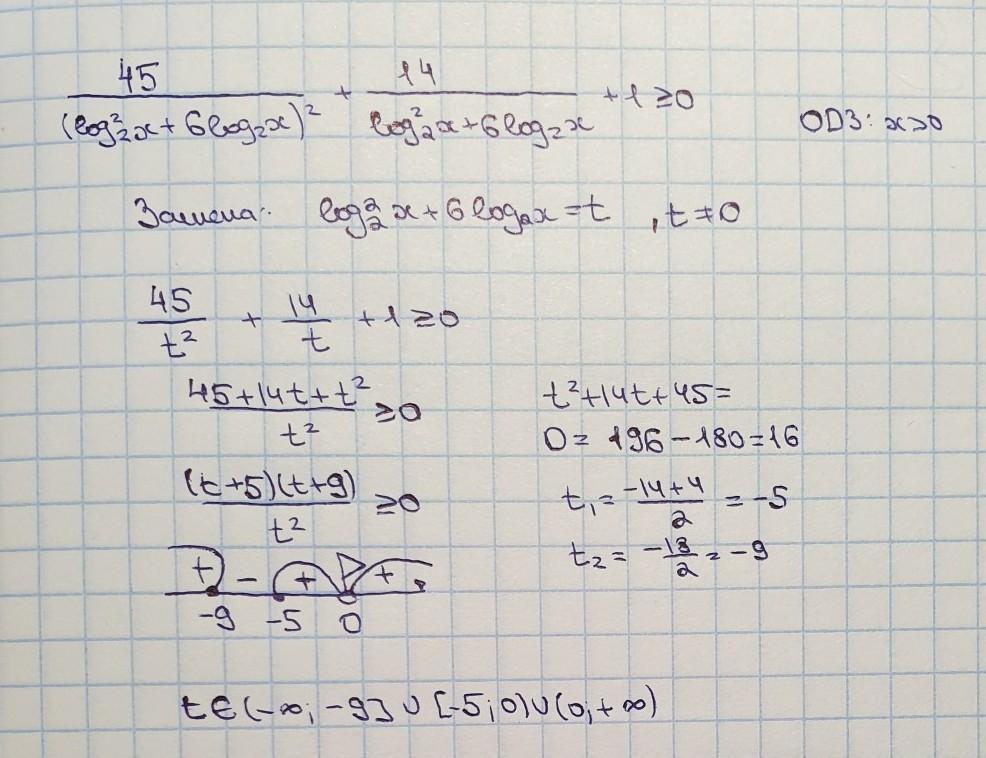 45/(log₂²x+6log₂x)² + 14/(log₂²x+6log₂x) +1≥0 ОДЗ: x>0
Замена: log₂²x+6log₂x=t , t≠0
45/t² + 14/t +1≥0
(45+14t+t²)/t² ≥0
t²+14t+45=
D= 196-180=16
(t+5)(t+9)/t² ≥0
t₁= (-14+4)/2 = -5
t₂= -18/2 = -9
+ - + +
-9 -5 0
t∈(-∞; -9]∪[-5;0)∪(0;+∞)